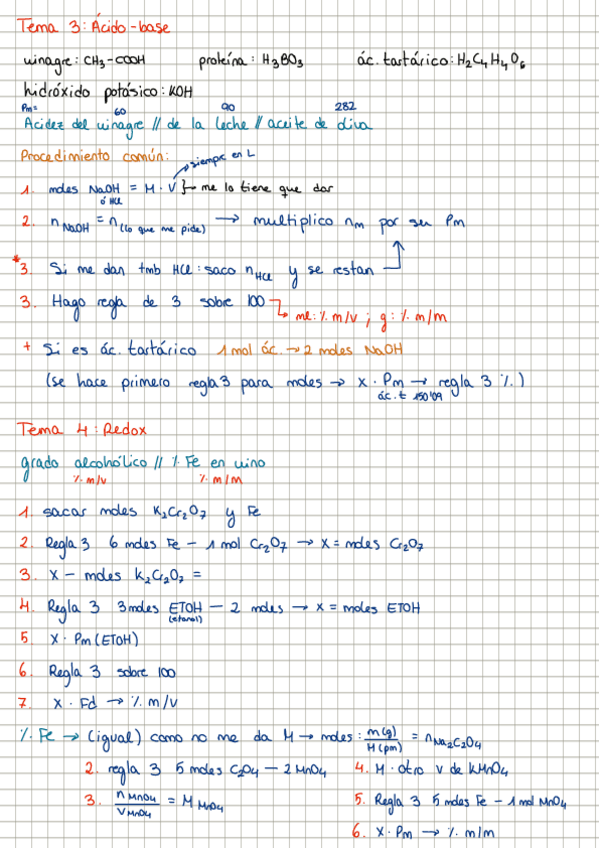 Tema 3: Ácido-base
vinagre: CH3-COOH proteína: H3BO3 ác. tartárico: H2C4H4O6
hidróxido potásico: KOH
Pm= 60 90 282
Acidez del vinagre // de la leche // aceite de oliva
Procedimiento común:
siempre en L
1. moles NaOH = M · V } me lo tiene que dar
ó HCl
2. n NaOH = n (lo que me pide) → multiplico nm por su Pm
*3. Si me dan tmb HCl: saco n HCl y se restan
3. Hago regla de 3 sobre 100 → ml: % m/v ; g: % m/m
+ Si es ác. tartárico 1 mol ác. → 2 moles NaOH
(se hace primero regla 3 para moles → x · Pm → regla 3 %)
ác. t 150'09
Tema 4: Redox
grado alcohólico // % Fe en vino
% m/v % m/m
1. sacar moles K2Cr2O7 y Fe
2. Regla 3 6 moles Fe - 1 mol Cr2O7 → x = moles Cr2O7
3. x - moles K2Cr2O7 =
4. Regla 3 3 moles ETOH - 2 moles → x = moles ETOH
(etanol)
5. x · Pm (ETOH)
6. Regla 3 sobre 100
7. x · Fd → % m/v
% Fe → (igual) como no me da M → moles: m(g)/M(pm) = n Na2C2O4
2. regla 3 5 moles C2O4 - 2 MnO4
3. n MnO4 / V MnO4 = M MnO4
4. M · otro v de KMnO4
5. Regla 3 5 moles Fe - 1 mol MnO4
6. x · Pm → % m/m